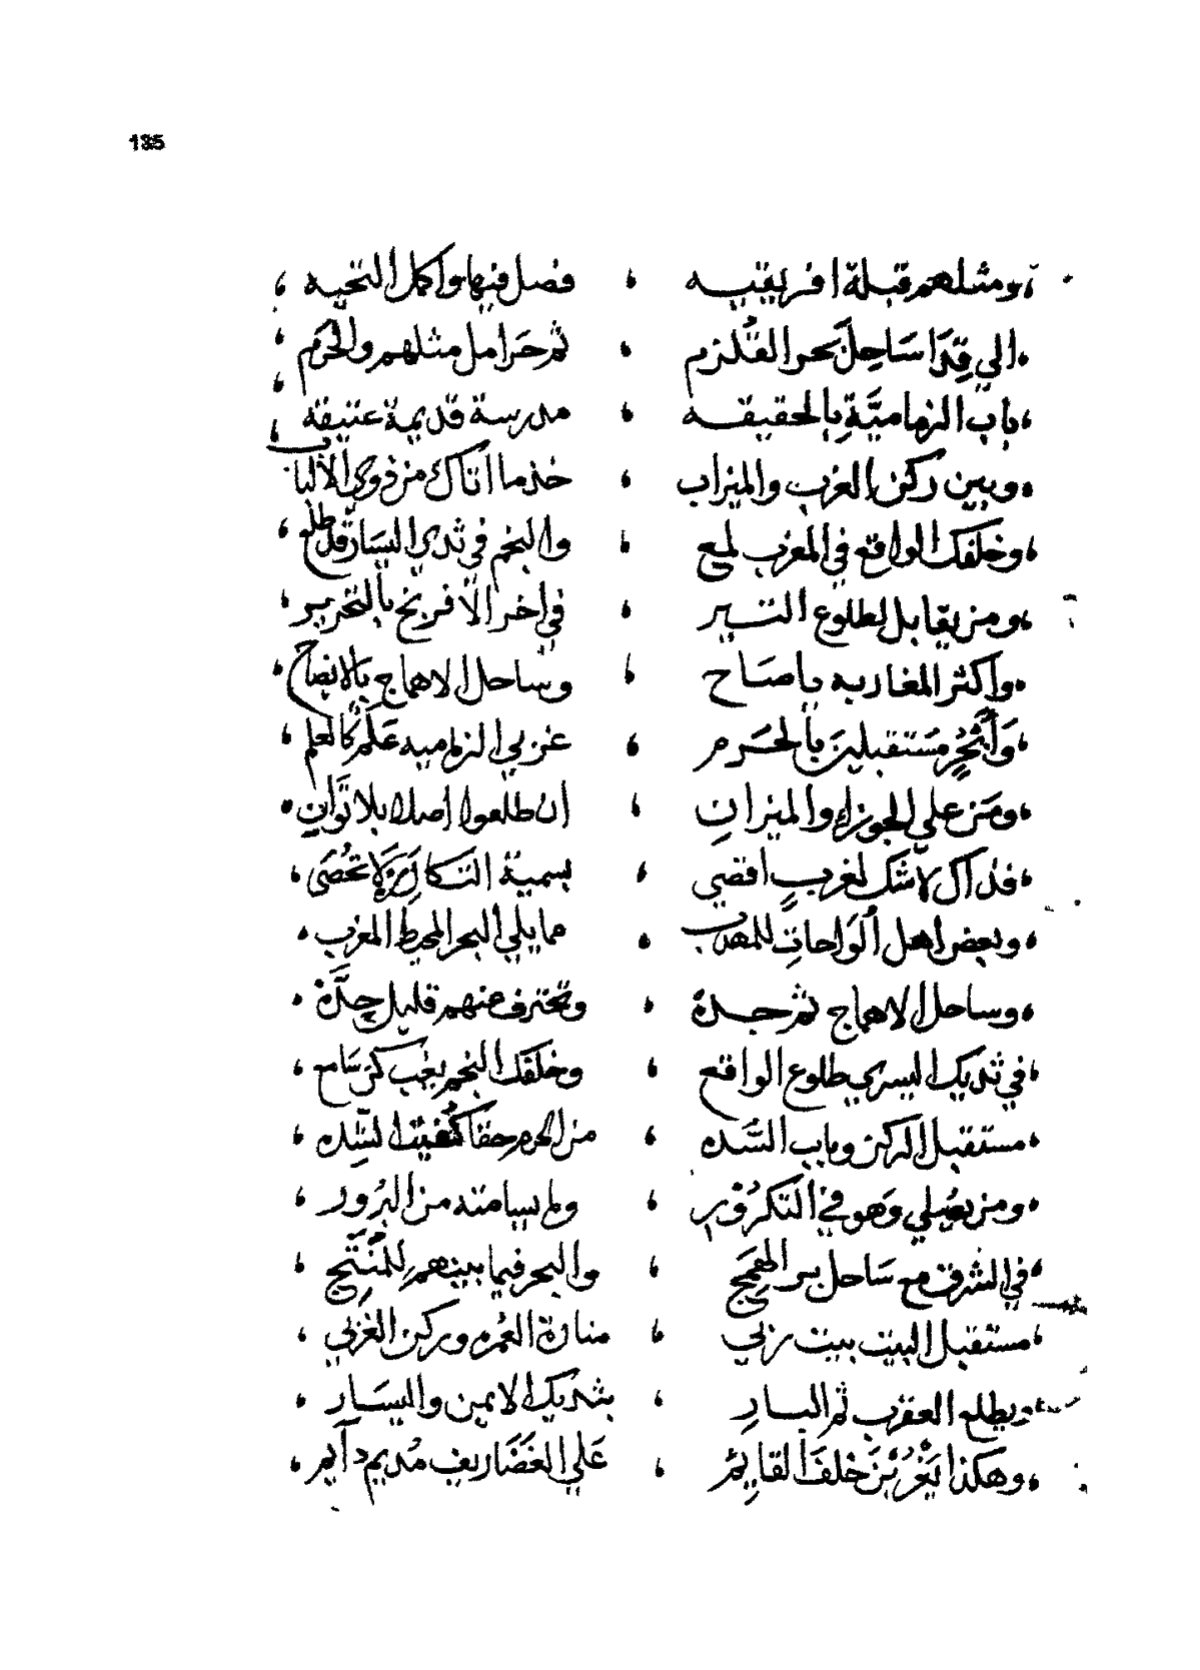 135
ومثلهم قبلة افريقيه ، فصل فيها واكمل التحيه ،
الي قِدَا سَاحِل بحر القُلزم ، ثم حَرامل مثلهم والحَرَم ،
باب الزماميَّةِ بالحقيقه ، مدرسة قديمة عتيقة ،
وبين ركن الغرب والميزاب ، خذ ما اتاك من ذوي الالباب
وخلفك الواقع في المغرب لمع ، والنجم في ثدي اليسار قد طلع ،
ومن يقابل لطلوع التير ، في اخر الافرنج بالتحرير ،
واكثر المغاربه ياصَاح ، وساحل الاهماج بالايضاح ،
مستقبلين بالحَرم ، غربي الزماميه عَلَم كالعلم ،
ومَن علي الجوزاء والميزانِ ، ان طلعوا اصلا بلا تَوَانٍ ،
لاشك لغربٍ اقصي ، بسمية لا تُحْصَى ،
وبعض اهل الوَاحاتِ للمهدب ، مما يلي البحر المحيط المغرب ،
وساحل الاهماج ثم جده ، وتحترف عنهم قليل جِدَّهْ ،
في ثديك اليسري طلوع الواقع ، وخلفك النجم يغيب كن سَامع ،
مستقبل الركن وباب السُّده ، من الحرم حقا كُفيت الشِّده ،
ومن يصلي وَهو في التكرُوْر ، ولم يسامته من البرُور ،
في الشرق مع سَاحل بر الهَمج ، والبحر فيما بينهم للمُنْتَتجِ ،
مستقبل البيت بيت ربي ، منارة العُمره وركن الغربي ،
ويطلع العقرب ثم البارِ ، بثديك الايمن واليسَار ،
وهكذا خلف القايم ، عَلي الغَضَاريف مُديم دايم ،